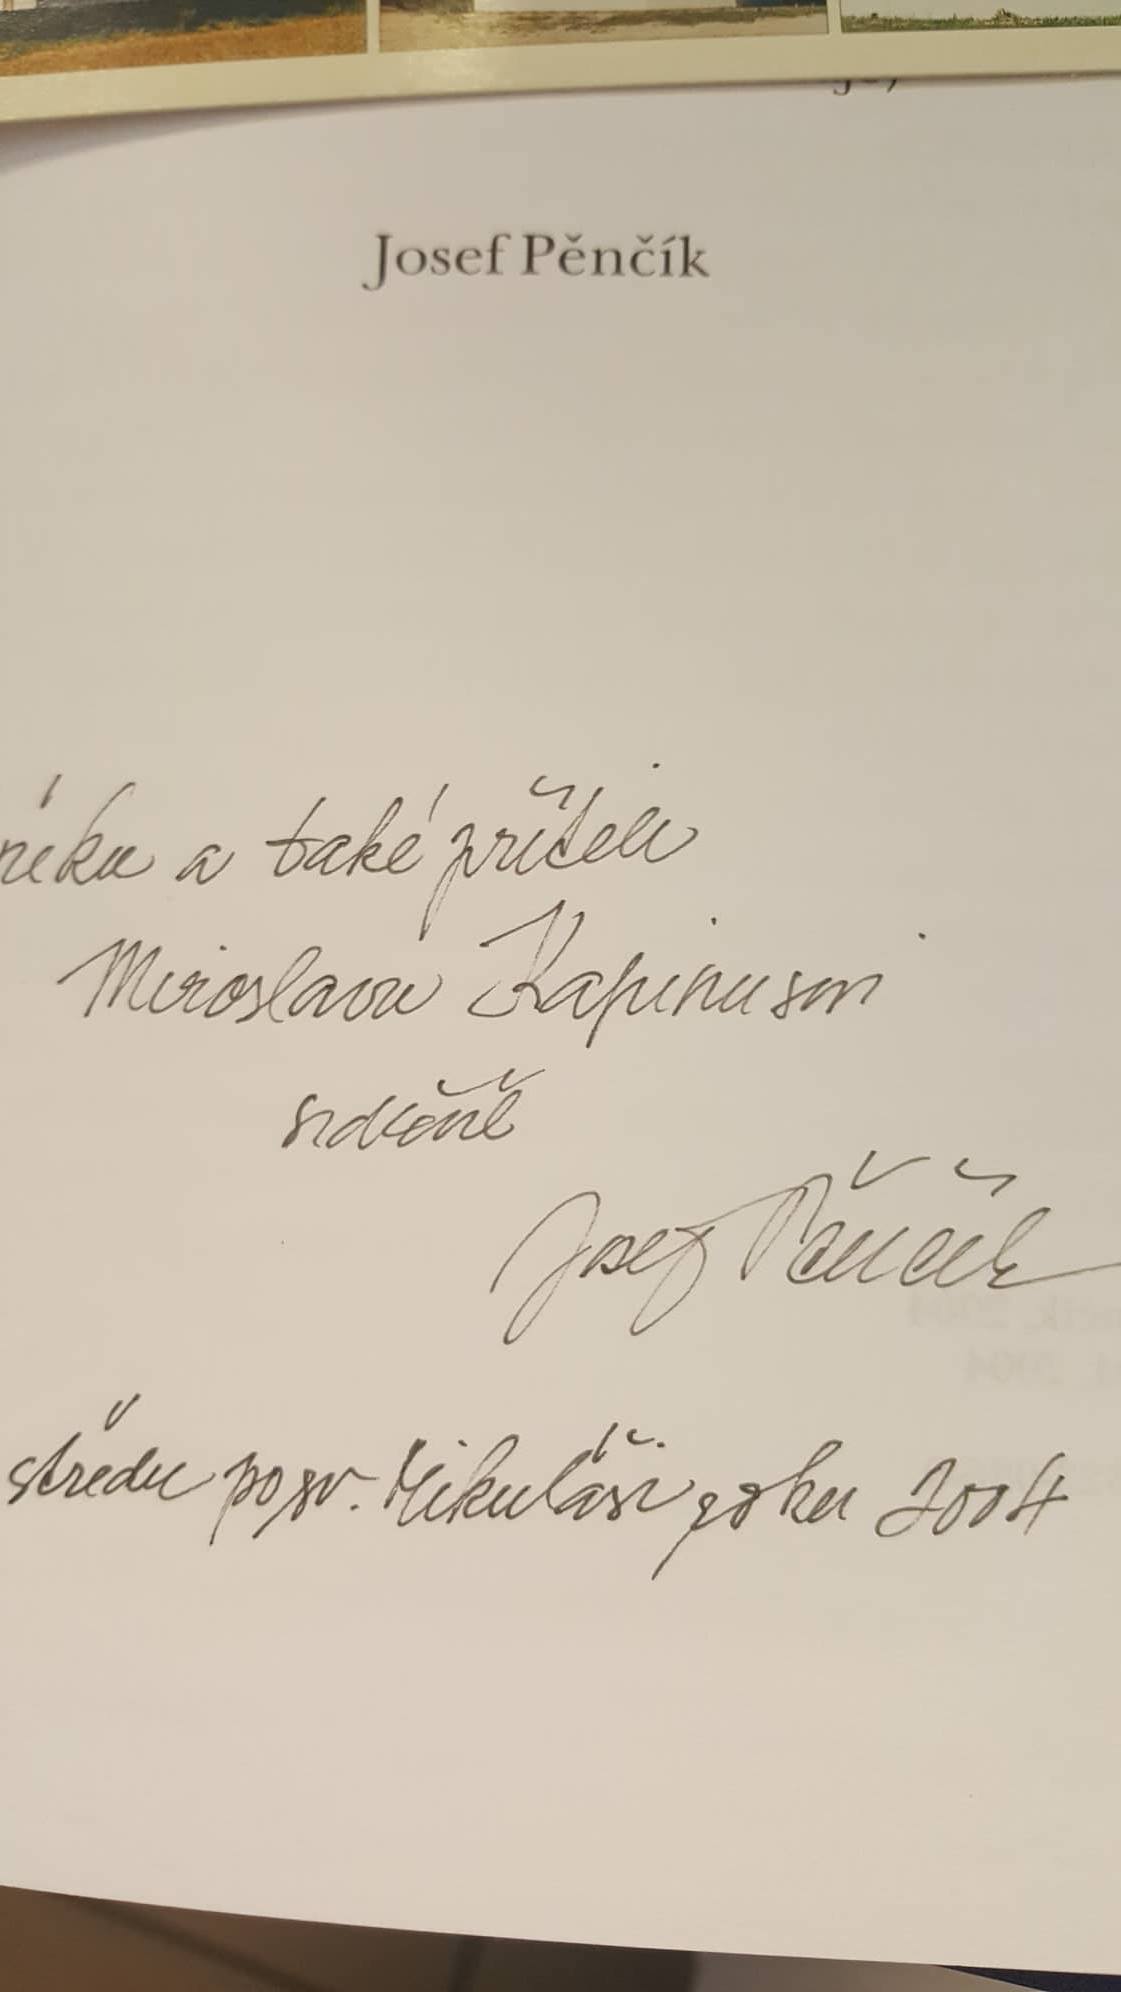 Josef Pěnčík
a také příteli
Miroslavu Kapinusovi
srdečně
Josef Pěnčík
středu po sv. Mikuláši roku 2004